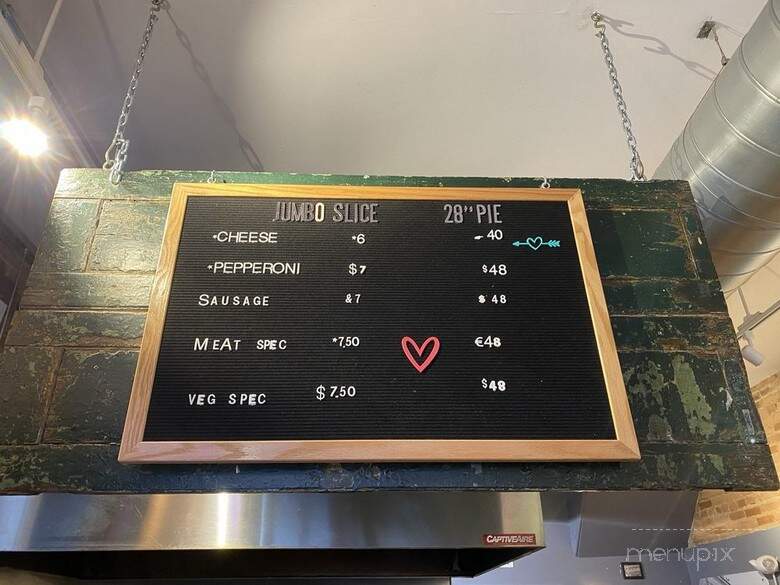 JUMBO SLICE 28" PIE
*CHEESE *6 - 40
*PEPPERONI $7 $48
SAUSAGE &7 $ 48
MEAT SPEC *7,50 €48
VEG SPEC $7.50 $48
CAPTIVEAIRE
menupix